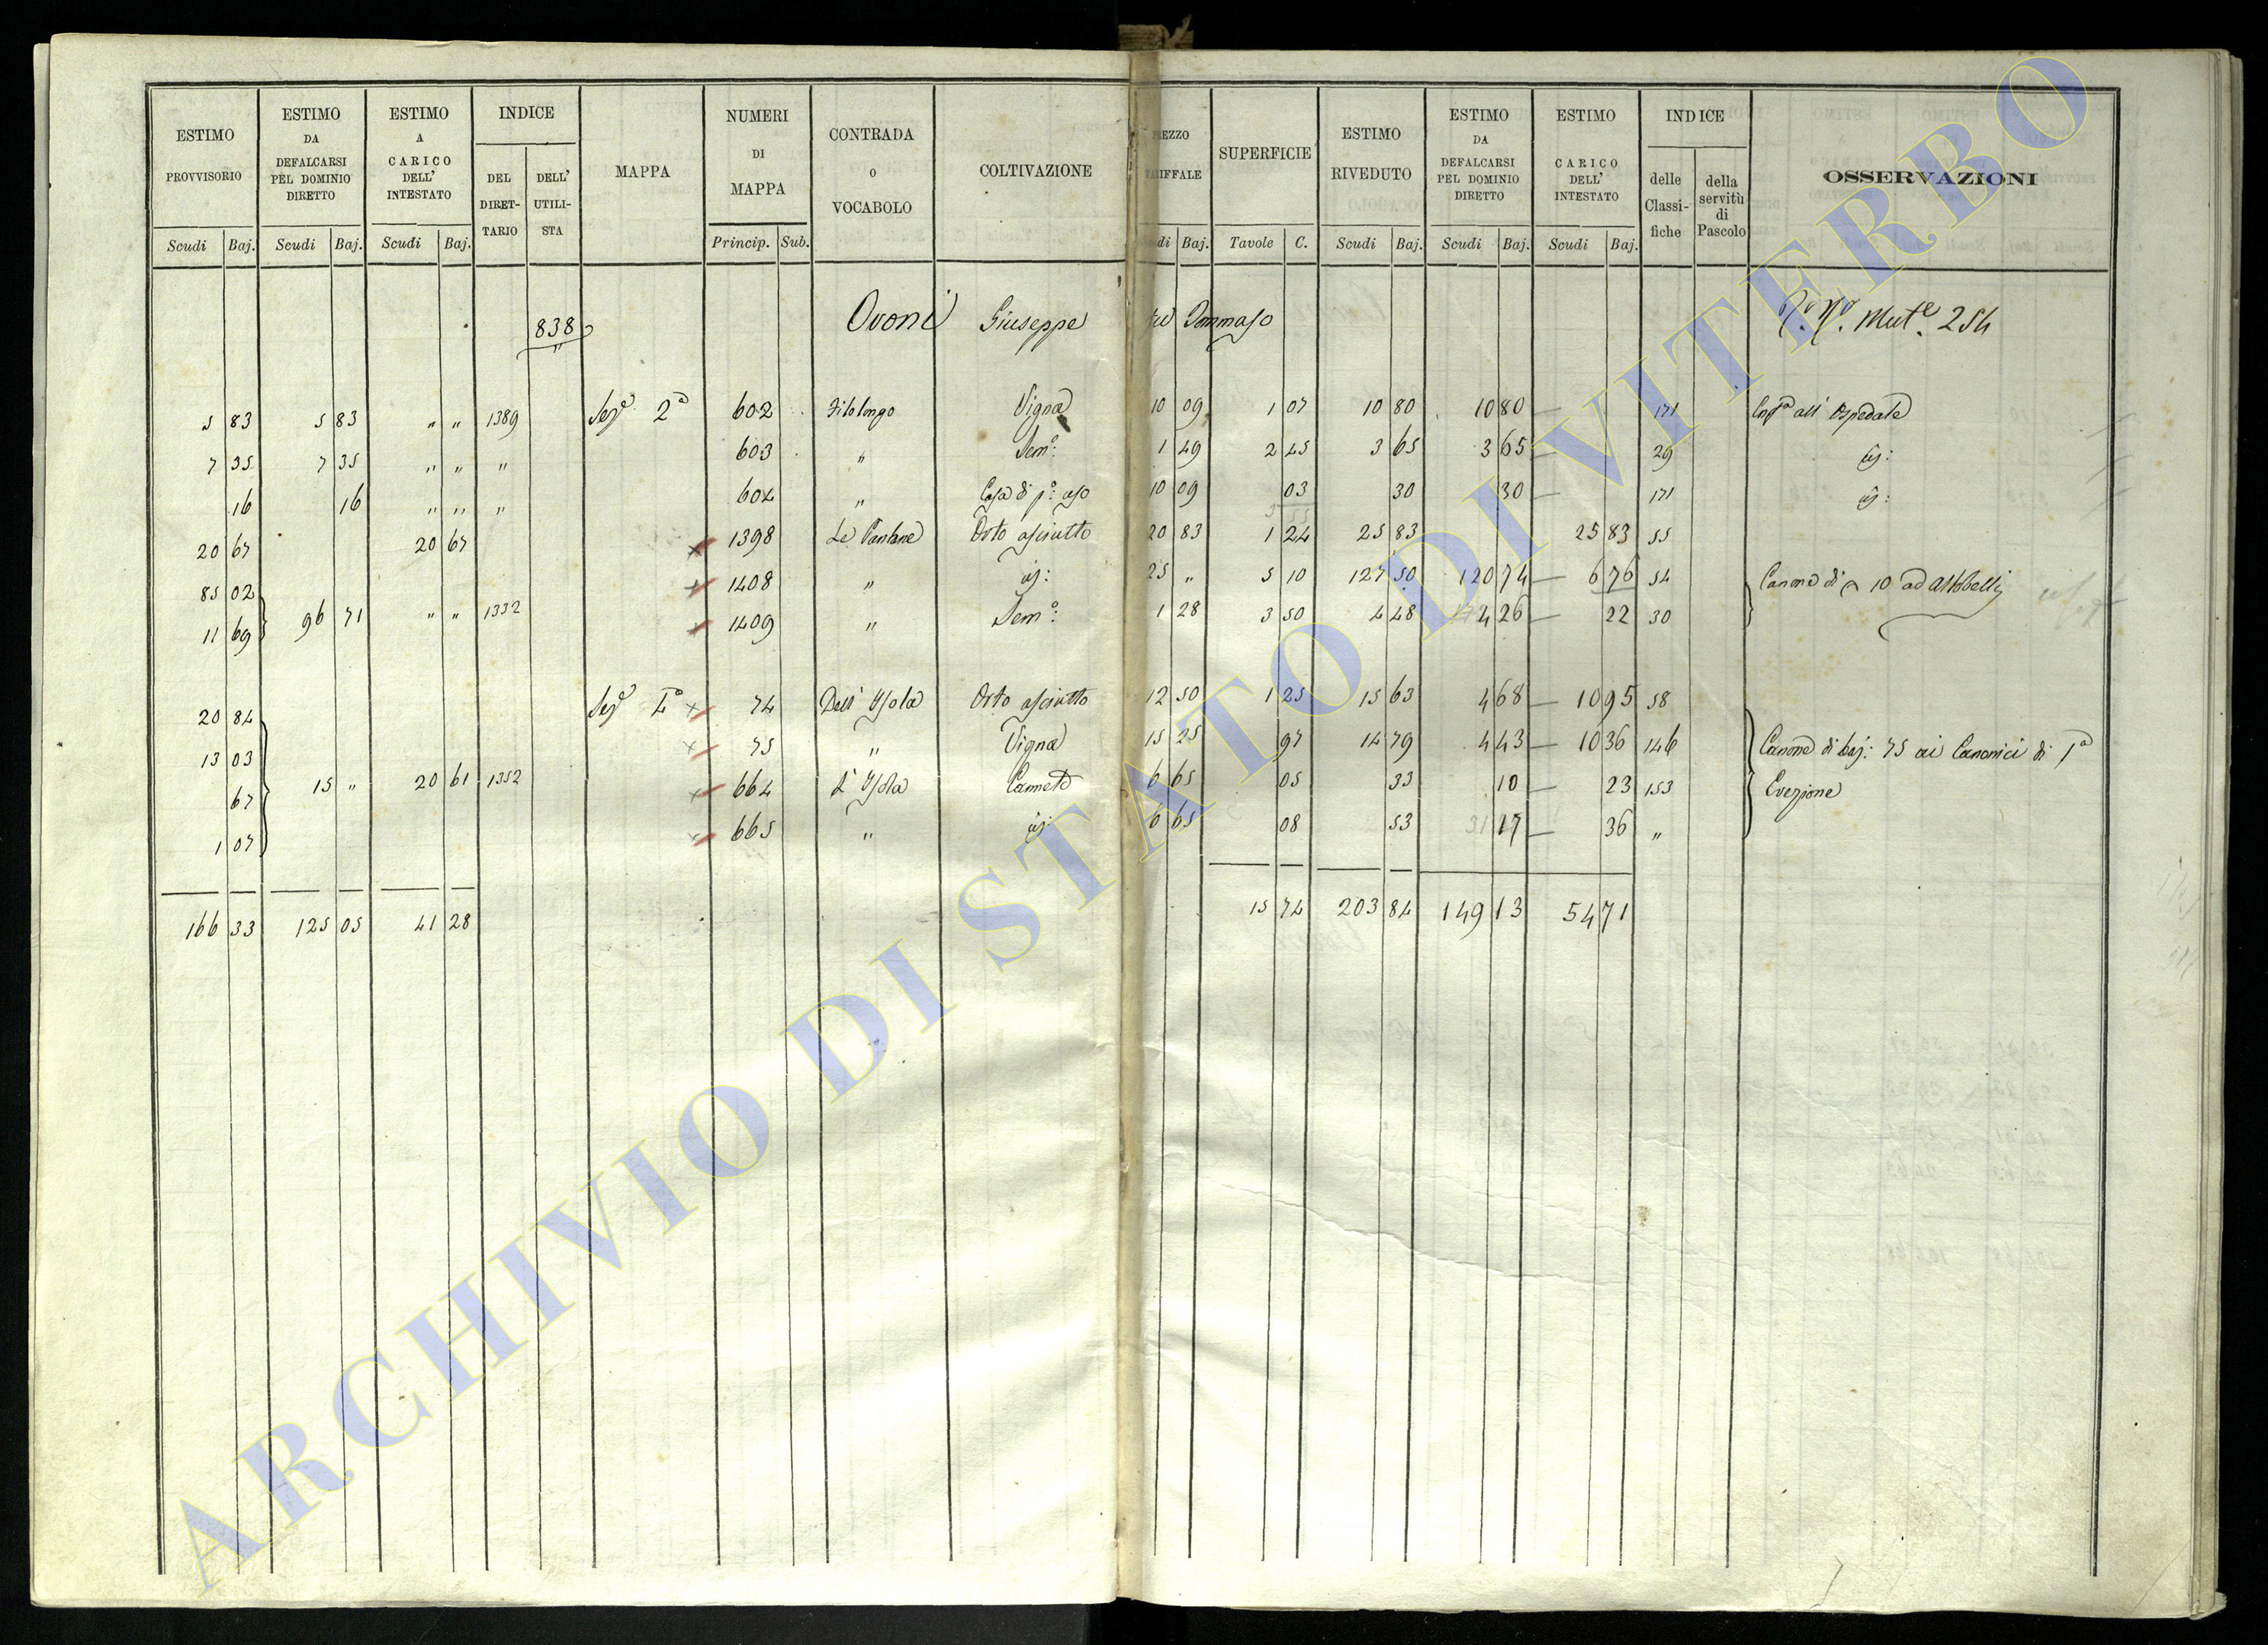 ESTIMO PROVVISORIO | ESTIMO DA DEFALCARSI PEL DOMINIO DIRETTO | ESTIMO A CARICO DELL' INTESTATO | INDICE | MAPPA | NUMERI DI MAPPA | CONTRADA O VOCABOLO | COLTIVAZIONE | TARIFFALE | SUPERFICIE | ESTIMO RIVEDUTO | ESTIMO DA DEFALCARSI PEL DOMINIO DIRETTO | ESTIMO CARICO DELL' INTESTATO | INDICE | OSSERVAZIONI
DEL DIRETTARIO | DELL' UTILISTA | delle Classifiche | della servitù di Pascolo
Scudi | Baj. | Scudi | Baj. | Scudi | Baj. | Princip. | Sub. | Baj. | Tavole | C. | Scudi | Baj. | Scudi | Baj. | Scudi | Baj.
838 Ovoni Giuseppe Tommaso Mut.e 254
5 83 | 5 83 | " " | 1389 | Sez.e 2a | 602 | Filolongo | Vigna | 10 09 | 1 07 | 10 80 | 10 80 — | 171 | all' Ospedale
7 35 | 7 35 | " " | " | 603 | " | Sem.o: | 1 49 | 2 45 | 3 65 | 3 65 — | 29
16 | 16 | " " | " | 604 | " | Casa di p.o uso | 10 09 | 03 | 30 | 30 — | 171
20 67 | 20 67 | 1398 | Le Pantane | Orto asciutto | 20 83 | 1 24 | 25 83 | 25 83 | 55
85 02 | 1408 | " | 25 " | 5 10 | 127 50 | 120 74 — | 6 76 | 54 | Canone di 10 ad Altobelli
11 69 | 96 71 | " " | 1352 | 1409 | " | Sem.o: | 1 28 | 3 50 | 4 48 | 4 26 — | 22 | 30
20 84 | Sez.e 4a | 74 | Dell' Isola | Orto asciutto | 12 50 | 1 25 | 15 63 | 4 68 — | 10 95 | 58
13 03 | 75 | " | Vigna | 15 25 | 97 | 14 79 | 4 43 — | 10 36 | 146 | Canone di baj: 75 ai Canonici di 1a
67 | 15 " | 20 61 | 1352 | 664 | L' Isola | Canneto | 6 65 | 05 | 33 | 10 — | 23 | 153 | Erezione
1 07 | 665 | " | 6 65 | 08 | 53 | 17 — | 36 | "
166 33 | 125 05 | 41 28 | 15 74 | 203 84 | 149 13 | 54 71
ARCHIVIO DI STATO DI VITERBO